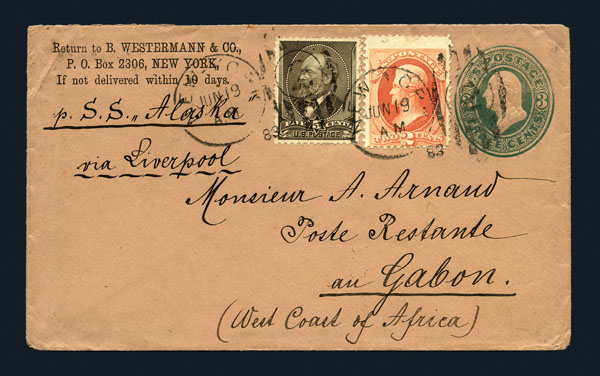 Return to B. WESTERMANN & CO.,
P. O. Box 2306, NEW YORK,
If not delivered within 10 days.
p. S. S. „Alaska
via Liverpool
JUN 19
AM
83
U.S. POSTAGE
JUN 19
AM
83
U.S. POSTAGE
3
THREE CENTS
Monsieur A. Arnaud
Poste Restante
au Gabon.
(West Coast of Africa)